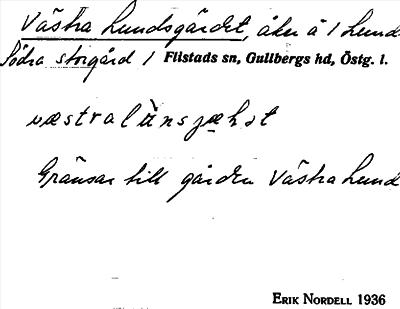 Västra Lundsgärdet, åker å 1 Lund
Södra storgård / Flistads sn, Gullbergs hd, Östg. l.
væstra lùnsjæhṣt
Gränsar till gården Västra Lund
ERIK NORDELL 1936